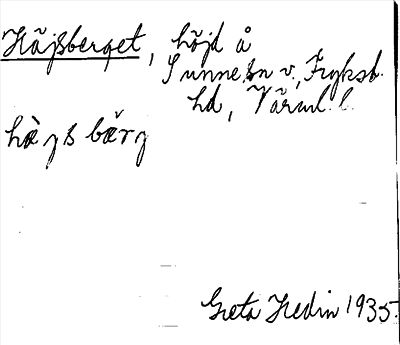 Häjsberget, höjd å
Sunne sn v., Fryksd.
hd, Värml. l.
hàjsbærj
Greta Hedin 1935.